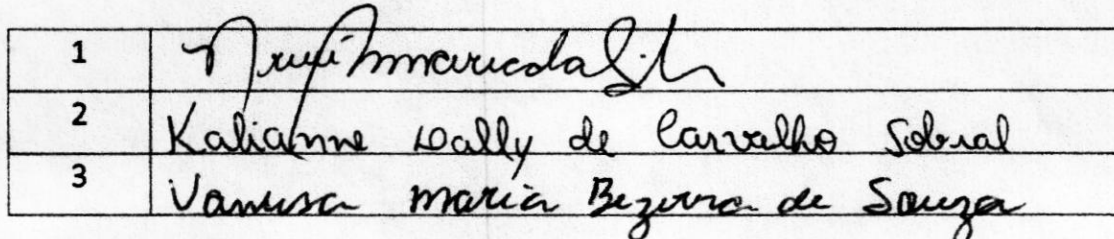 1
2 Kalianne Wally de Carvalho Sobral
3 Vanusa Maria Bezerra de Souza